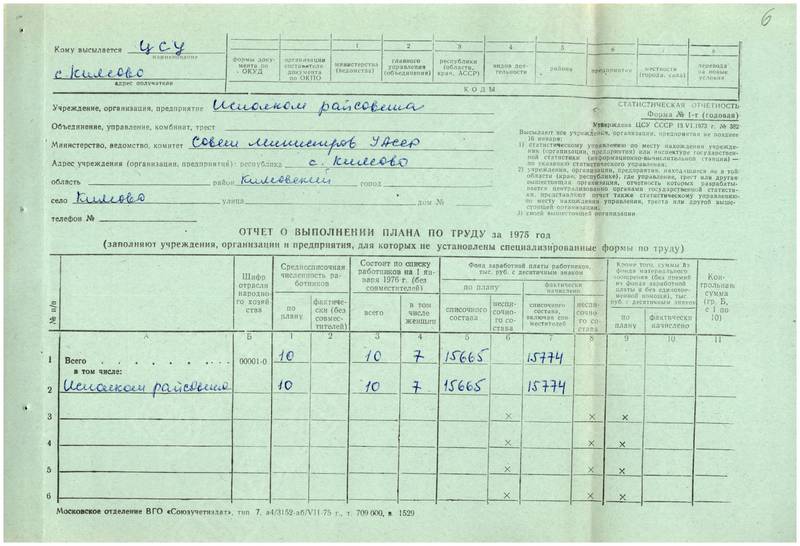 6
Кому высылается ЦСУ
наименование
с. Кизово
адрес получателя
формы документа по ОКУД
организации составителя документа по ОКПО
1
министерства (ведомства)
2
главного управления (объединения)
3
республики (области, края, АССР)
4
видов деятельности
5
района
6
предприятия
7
местности (города, села)
8
перевода на новые условия
КОДЫ
СТАТИСТИЧЕСКАЯ ОТЧЕТНОСТЬ
Форма № 1-т (годовая)
Утверждена ЦСУ СССР 19.VI.1973 г. № 382
Высылают все учреждения, организации, предприятия не позднее
16 января:
1) статистическому управлению по месту нахождения учреждения (организации, предприятия) или инспектуре государственной статистики (информационно-вычислительной станции) — по указанию статистического управления;
2) учреждения, организации, предприятия, находящиеся не в той области (крае, республике), где управление, трест или другая вышестоящая организация, отчетность которых разрабатывается централизованно органами государственной статистики, представляют отчет также статистическому управлению по месту нахождения управления, треста или другой вышестоящей организации;
3) своей вышестоящей организации
Учреждение, организация, предприятие Исполком райсовета
Объединение, управление, комбинат, трест
Министерство, ведомство, комитет Совет Министров УАССР
Адрес учреждения (организации, предприятия): республика
область район город
село улица дом №
телефон №
ОТЧЕТ О ВЫПОЛНЕНИИ ПЛАНА ПО ТРУДУ за 1975 год
(заполняют учреждения, организации и предприятия, для которых не установлены специализированные формы по труду)
№ п/п
Шифр отрасли народного хозяйства
Среднесписочная численность работников
по плану
фактически (без совместителей)
Состоит по списку работников на 1 января 1976 г. (без совместителей)
всего
в том числе женщин
Фонд заработной платы работников, тыс. руб. с десятичным знаком
по плану
списочного состава
несписочного состава
фактически начислено
списочного состава, включая совместителей
несписочного состава
Кроме того, суммы из фонда материального поощрения (без премий из фонда заработной платы и без единовременной помощи), тыс. руб. с десятичным знаком
по плану
фактически начислено
Контрольная сумма (гр. Б, с 1 по 10)
А Б 1 2 3 4 5 6 7 8 9 10 11
1 Всего 00001-0 10 10 7 15665 15774
в том числе:
2 Исполком райсовета 10 10 7 15665 15774
3 × × ×
4 × × ×
5 × × ×
6 × × ×
Московское отделение ВГО «Союзучетиздат», тип 7, а4/3152-аб/VII-75 г., т. 709 000, в. 1529